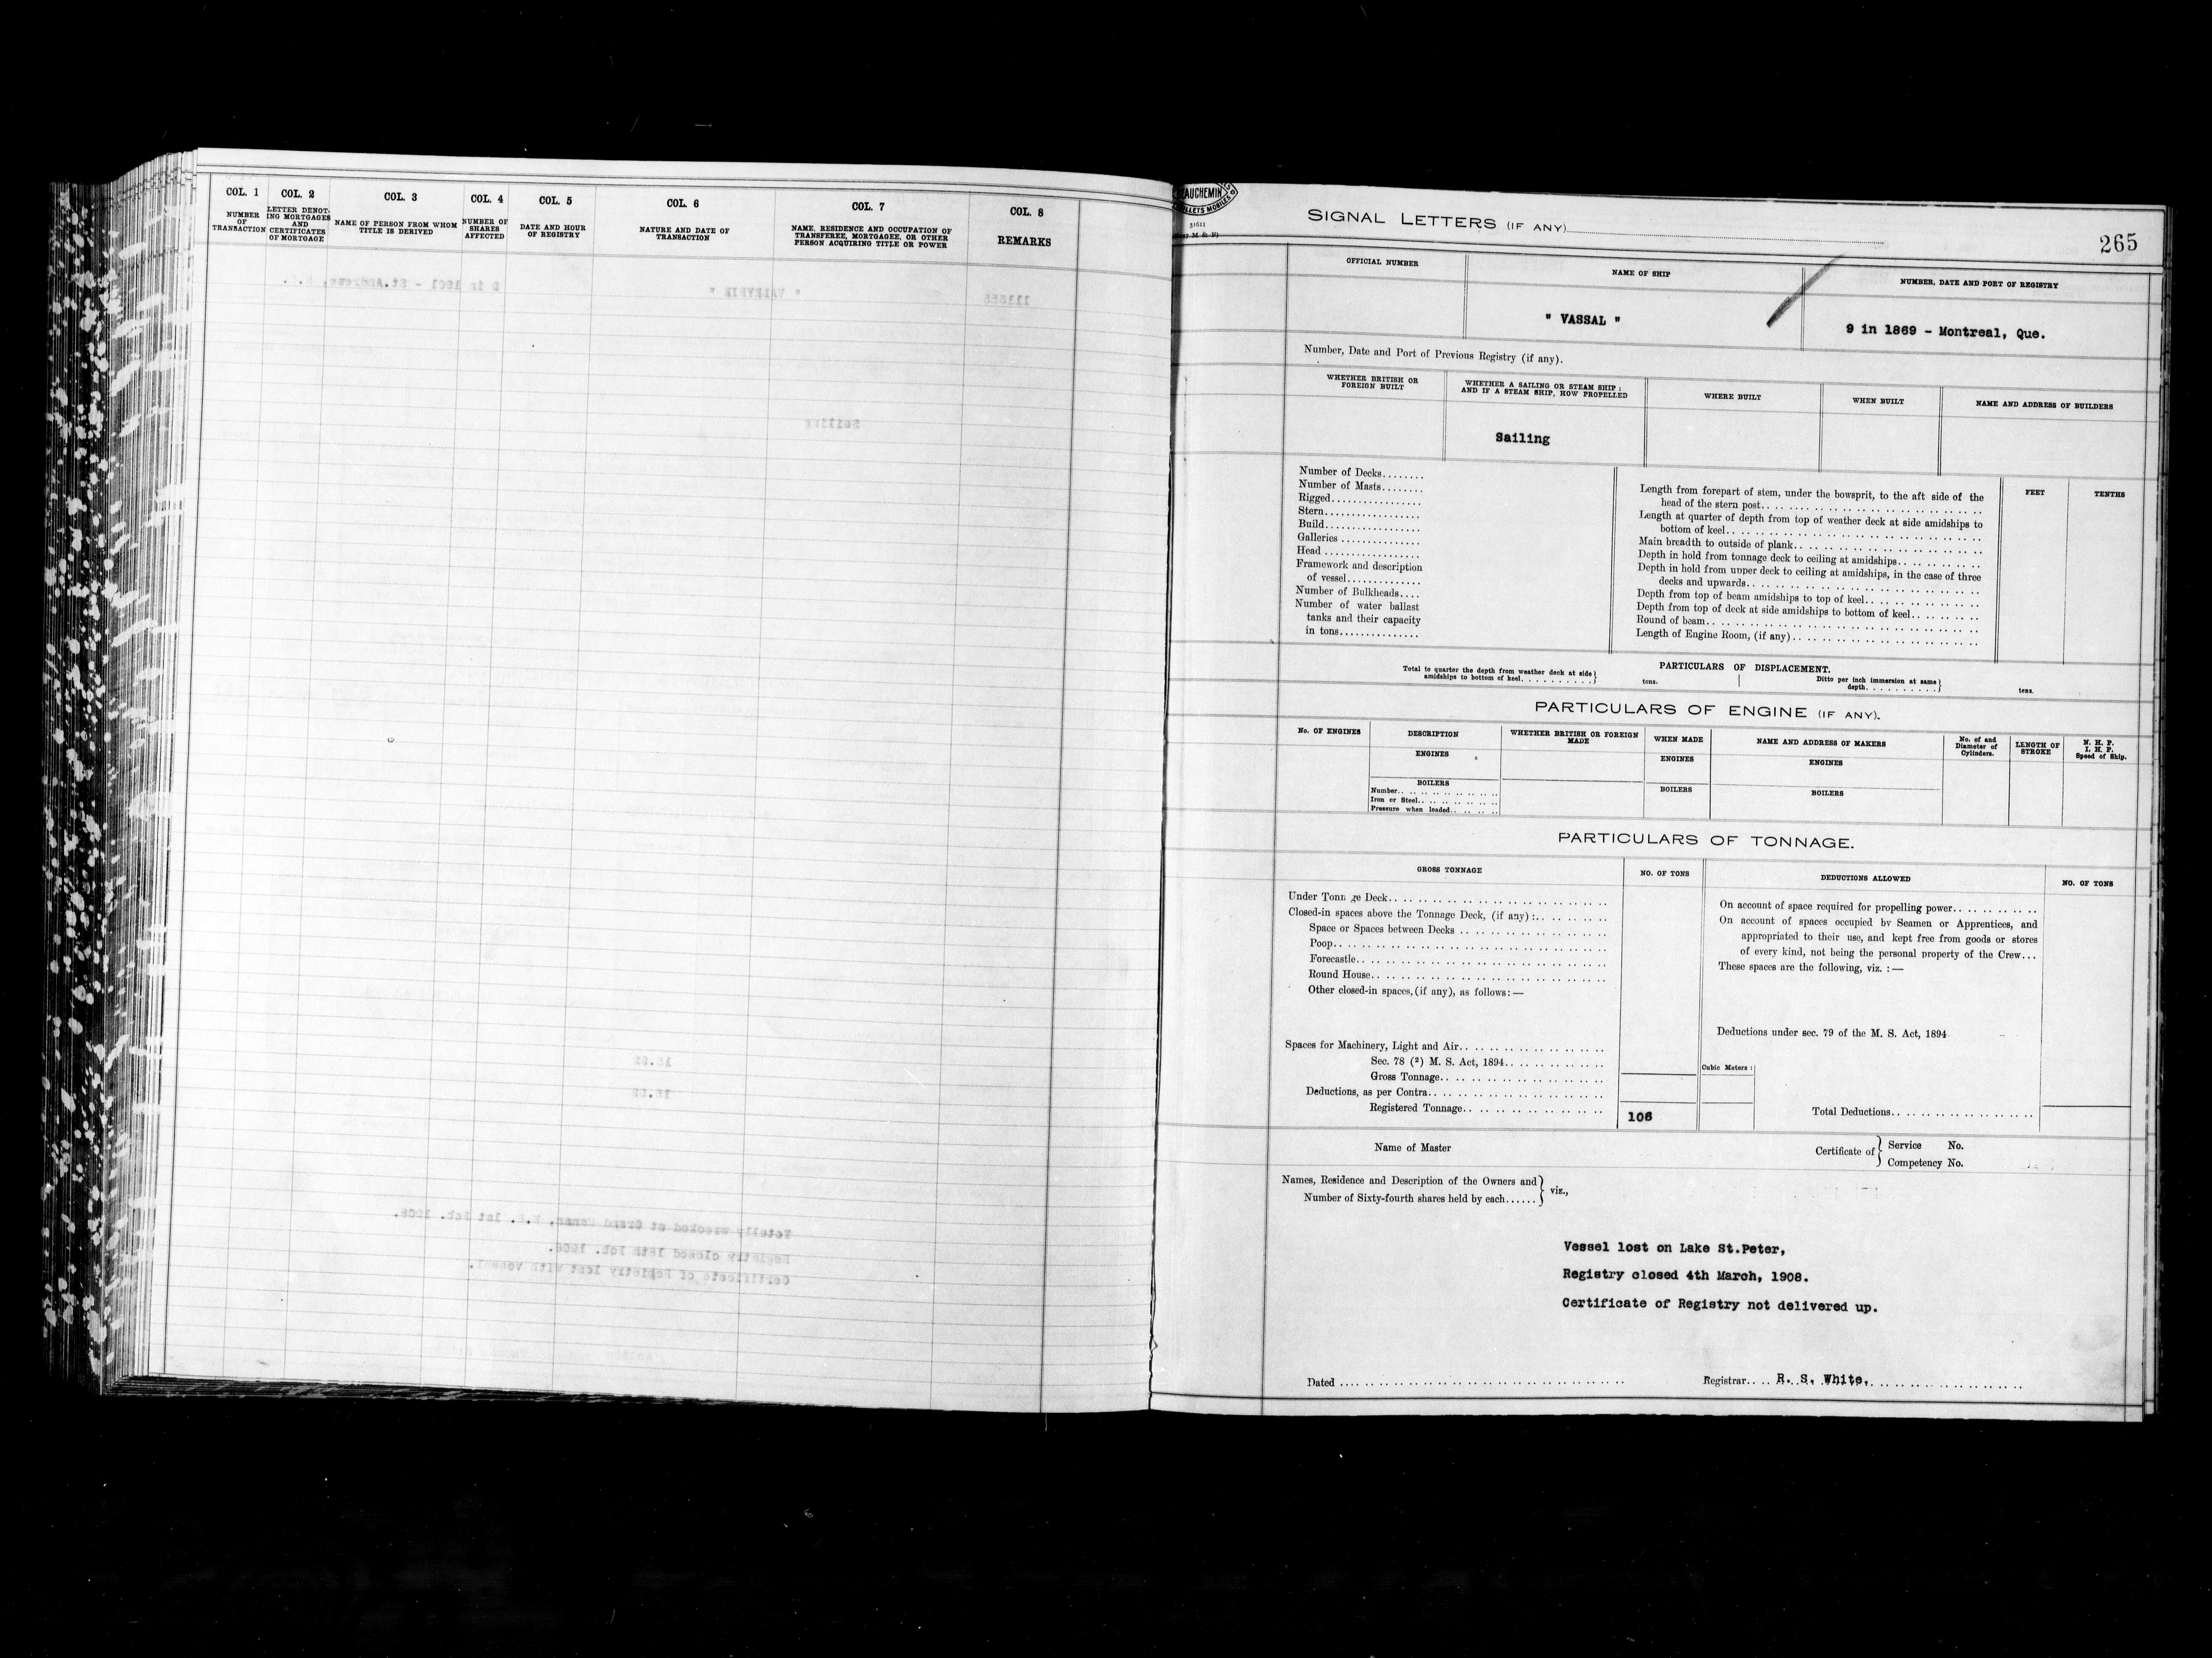 COL. 1
NUMBER
OF
TRANSACTION
COL. 2
LETTER DENOT-
ING MORTGAGES
AND
CERTIFICATES
OF MORTGAGE
COL. 3
NAME OF PERSON FROM WHOM
TITLE IS DERIVED
COL. 4
NUMBER OF
SHARES
AFFECTED
COL. 5
DATE AND HOUR
OF REGISTRY
COL. 6
NATURE AND DATE OF
TRANSACTION
COL. 7
NAME, RESIDENCE AND OCCUPATION OF
TRANSFEREE, MORTGAGEE, OR OTHER
PERSON ACQUIRING TITLE OR POWER
COL. 8
REMARKS
SIGNAL LETTERS (IF ANY)
265
OFFICIAL NUMBER
NAME OF SHIP
NUMBER, DATE AND PORT OF REGISTRY
" VASSAL "
9 in 1869 - Montreal, Que.
Number, Date and Port of Previous Registry (if any).
WHETHER BRITISH OR
FOREIGN BUILT
WHETHER A SAILING OR STEAM SHIP ;
AND IF A STEAM SHIP, HOW PROPELLED
WHERE BUILT
WHEN BUILT
NAME AND ADDRESS OF BUILDERS
Sailing
Number of Decks........
Number of Masts........
Rigged.................
Stern..................
Build..................
Galleries ...............
Head ..................
Framework and description
of vessel..............
Number of Bulkheads....
Number of water ballast
tanks and their capacity
in tons...............
Length from forepart of stem, under the bowsprit, to the aft side of the
head of the stern post..
Length at quarter of depth from top of weather deck at side amidships to
bottom of keel..
Main breadth to outside of plank..
Depth in hold from tonnage deck to ceiling at amidships..
Depth in hold from upper deck to ceiling at amidships, in the case of three
decks and upwards..
Depth from top of beam amidships to top of keel..
Depth from top of deck at side amidships to bottom of keel..
Round of beam..
Length of Engine Room, (if any)..
FEET
TENTHS
PARTICULARS OF DISPLACEMENT.
Total to quarter the depth from weather deck at side
amidships to bottom of keel..........
tons.
Ditto per inch immersion at same
depth..........
tons.
PARTICULARS OF ENGINE (IF ANY).
No. OF ENGINES
DESCRIPTION
WHETHER BRITISH OR FOREIGN
MADE
WHEN MADE
NAME AND ADDRESS OF MAKERS
No. of and
Diameter of
Cylinders.
LENGTH OF
STROKE
N. H. P.
I. H. P.
Speed of Ship.
ENGINES
ENGINES
ENGINES
BOILERS
BOILERS
BOILERS
Number..
Iron or Steel..
Pressure when loaded..
PARTICULARS OF TONNAGE.
GROSS TONNAGE
NO. OF TONS
DEDUCTIONS ALLOWED
NO. OF TONS
Under Tonn ge Deck..
Closed-in spaces above the Tonnage Deck, (if any):..
Space or Spaces between Decks ..
Poop..
Forecastle..
Round House..
Other closed-in spaces, (if any), as follows:—
Spaces for Machinery, Light and Air..
Sec. 78 (2) M. S. Act, 1894..
Gross Tonnage..
Deductions, as per Contra..
Registered Tonnage..
106
On account of space required for propelling power..
On account of spaces occupied by Seamen or Apprentices, and
appropriated to their use, and kept free from goods or stores
of every kind, not being the personal property of the Crew...
These spaces are the following, viz. :—
Deductions under sec. 79 of the M. S. Act, 1894
Cubic Meters :
Total Deductions..
Name of Master
Certificate of
Service No.
Competency No.
Names, Residence and Description of the Owners and
Number of Sixty-fourth shares held by each......
viz.,
Vessel lost on Lake St.Peter,
Registry closed 4th March, 1908.
Certificate of Registry not delivered up.
Dated ..
Registrar.... R. S. White,